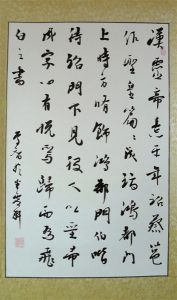 漢靈帝熹平年詔蔡邕
作聖皇篇々成詣鴻都門
上時方脩飾鴻都門伯喈
待詔門下見役人以堊帚
成字心有悅焉歸而為飛
白之書